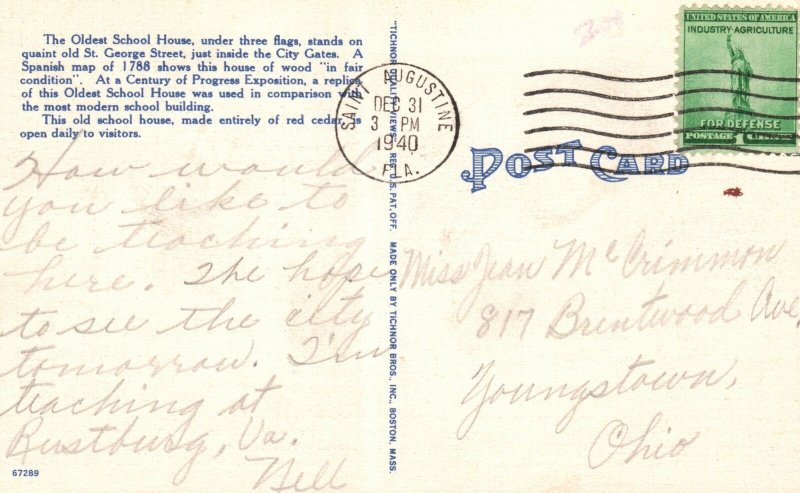 The Oldest School House, under three flags, stands on
quaint old St. George Street, just inside the City Gates. A
Spanish map of 1788 shows this house of wood "in fair
condition". At a Century of Progress Exposition, a replica
of this Oldest School House was used in comparison with
the most modern school building.
This old school house, made entirely of red cedar, is
open daily to visitors.
How would
you like to
be teaching
here. The hope
to see the city
tomorrow. I'm
teaching at
Rustburg, Va.
Nell
67289
"TICHNOR QUALITY VIEWS," REG. U.S. PAT. OFF. MADE ONLY BY TICHNOR BROS., INC., BOSTON, MASS.
SAINT AUGUSTINE
DEC 31
3 PM
1940
FLA.
UNITED STATES OF AMERICA
INDUSTRY-AGRICULTURE
FOR DEFENSE
POSTAGE 1
POST CARD
Miss Jean McCrimmon
817 Brentwood Ave,
Youngstown,
Ohio